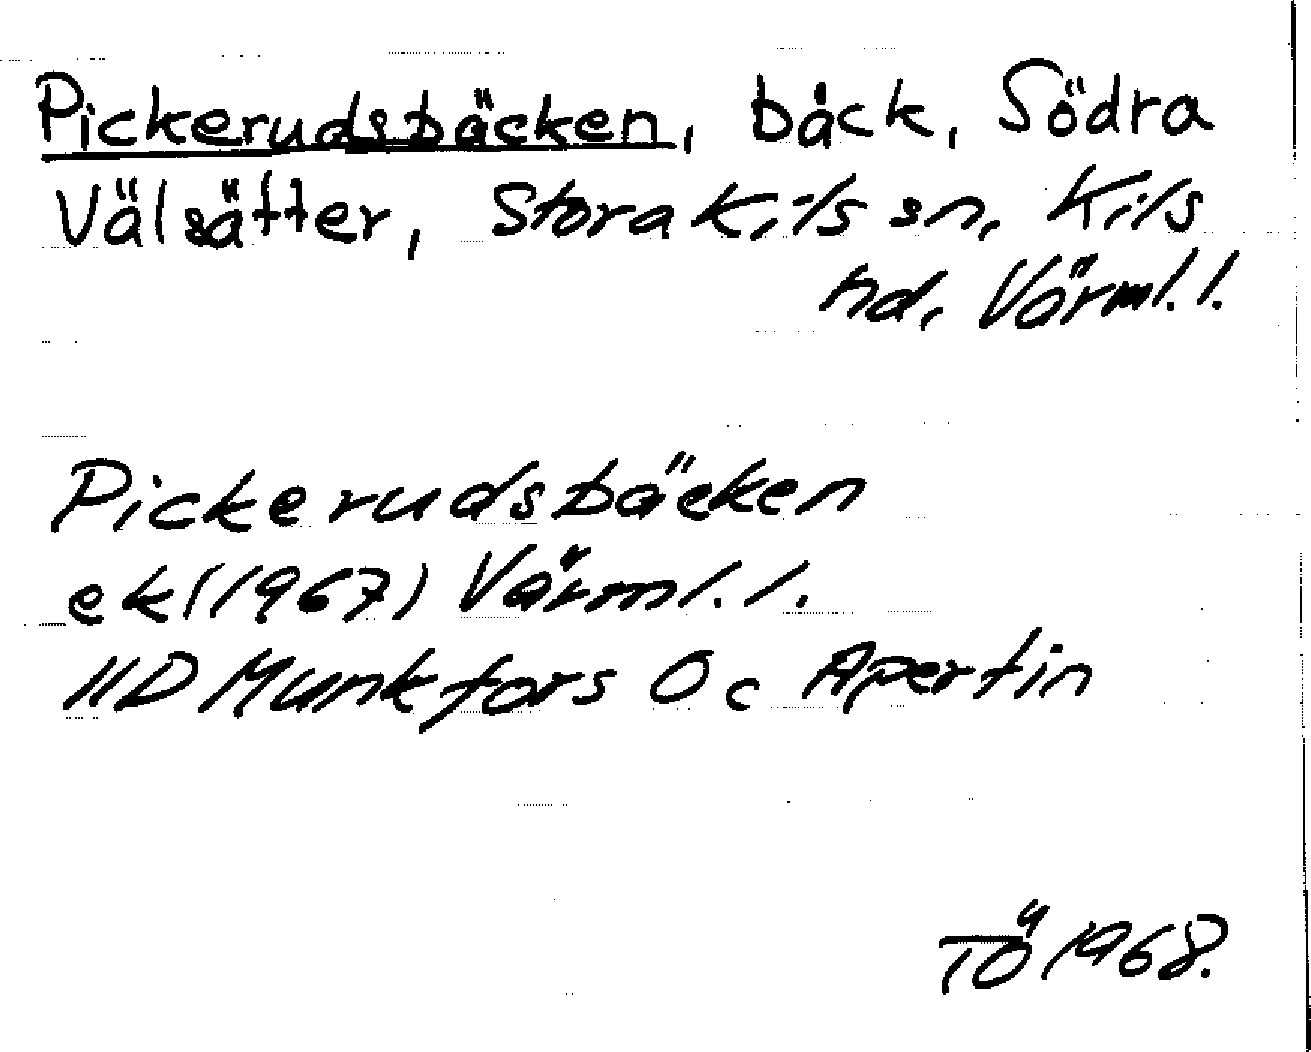 Pickerudsbäcken, bäck, Södra
Välsätter, Stora Kils sn, Kils
hd, Värml. l.
Pickerudsbäcken
ek (1967) Värml. l.
11D Munkfors Oc Apertin
TÖ 1968.